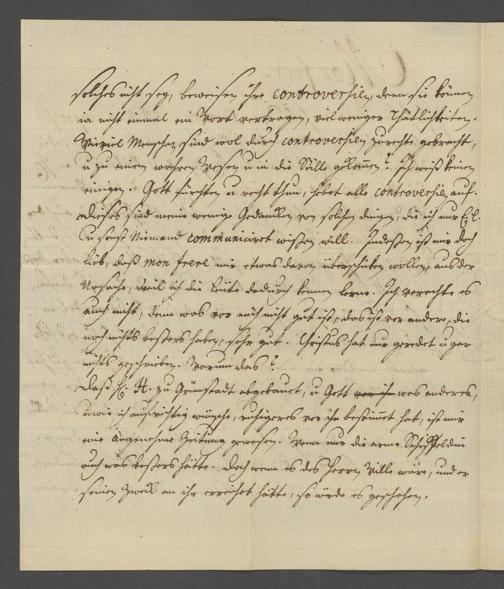 solches nicht sey, beweisen ihre controversien, denn sie können
ja nicht einmal ein Wort vertragen, viel weniger Thätlichkeiten.
Wieviel Menschen sind wol durch controversien zurechte gebracht,
u zu einem wahren Wesen u in die Stille gekommen? Ich weiß keinen
einigen. Gott fürchten u recht thun, hebet alle controversien auf.
dieses sind meine wenige Gedancken von solchen dingen, die ich nur
sonst Niemand communiciret wissen will. Indessen ist mir doch
lieb, daß mon frere mir etwas davon überschicken wollen, aus der
Ursache, weil ich die Leute dadurch kennen lerne. Ich verachte es
auch nicht, denn was vor mich nicht gut ist, das ist vor andere, die
noch nichts bessers haben, sehr gut. Christus hat nur geredet u gar
nichts geschrieben. Warum das?
Daß H. zu Grünstadt abgebauet, u Gott was anderes,
u wie ich aufrichtig wünsche, ruhigeres vor ihn bestimmt hat, ist mir
eine Angenehme Zeitung gewesen. Wenn nur die arme
auch was bessers hätte. Doch wenn es des Herrn Wille wäre, und er
seinen Zweck an ihr erreichet hätte, so würde es geschehen.